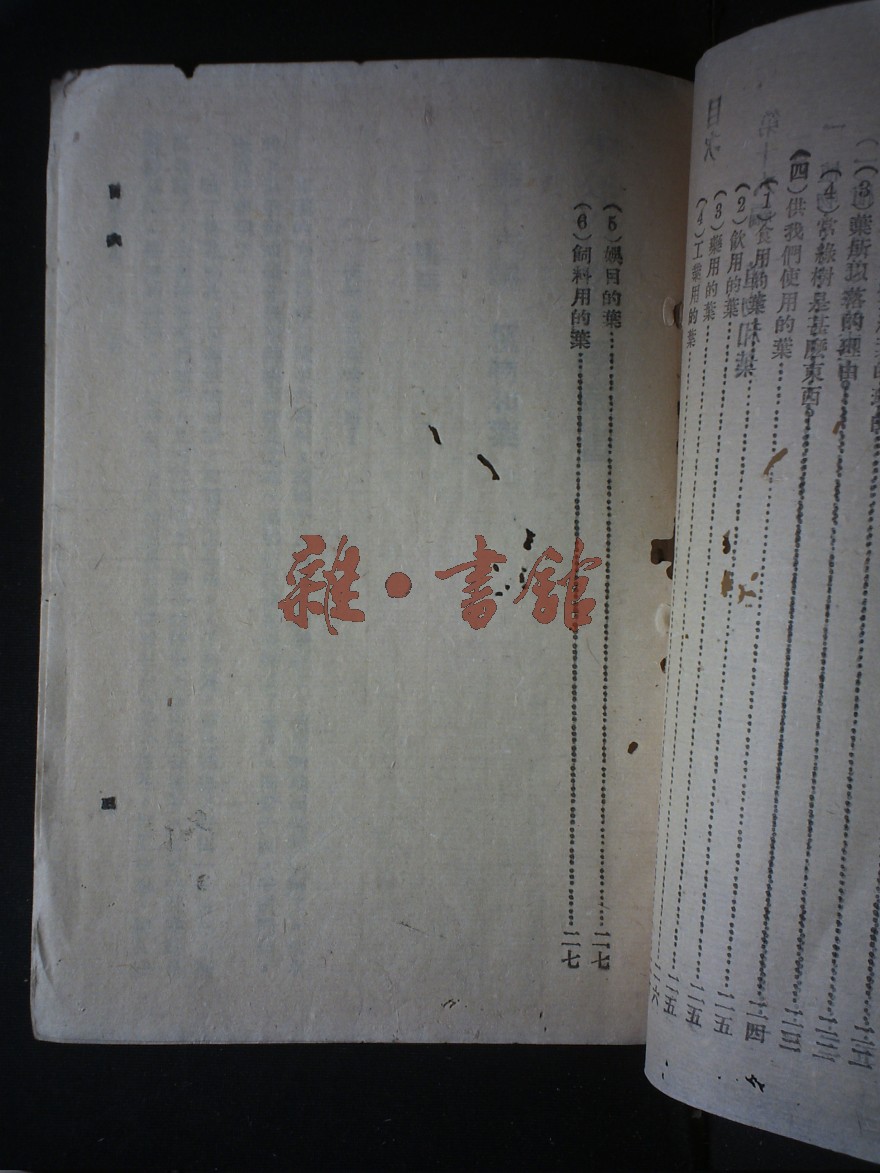 目次
(3)葉所以落的理由
(4)常綠樹是甚麼東西
(四)供我們使用的葉
(1)食用的葉 二四
(2)飲用的葉 二五
(3)藥用的葉 二五
(4)工業用的葉
(5)娛目的葉 二七
(6)飼料用的葉 二七
目次
三
雜·書館